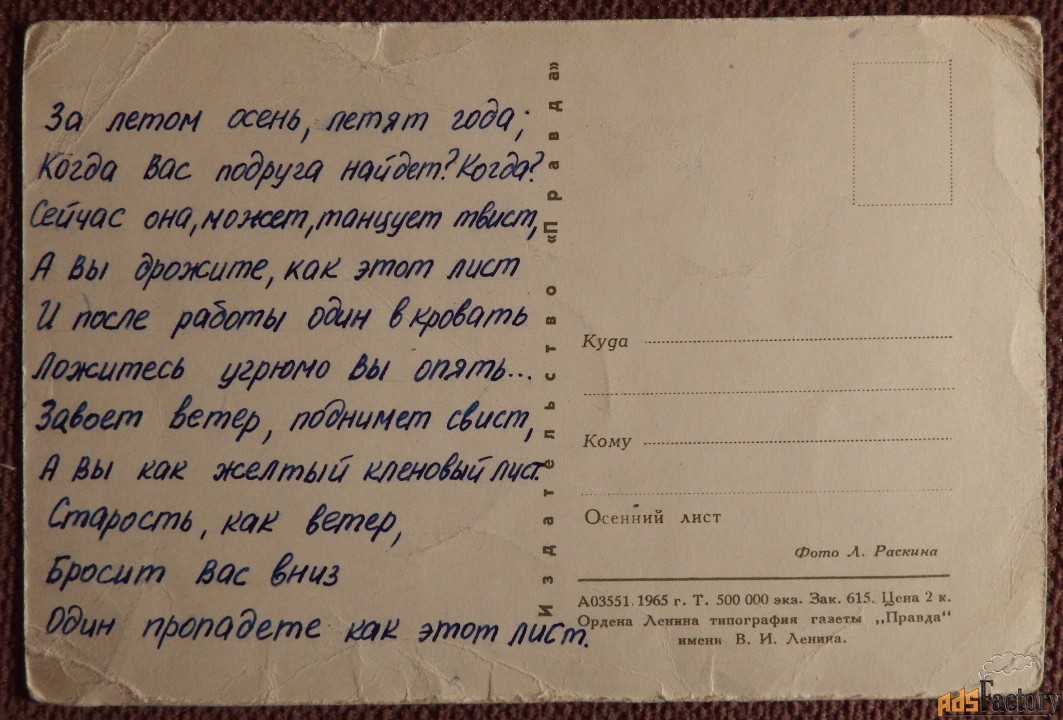 За летом осень, летят года;
Когда Вас подруга найдет? Когда?
Сейчас она, может, танцует твист,
А Вы дрожите, как этот лист
И после работы один в кровать
Ложитесь угрюмо Вы опять...
Завоет ветер, поднимет свист,
А Вы как желтый кленовый лист.
Старость, как ветер,
Бросит Вас вниз
Один пропадете как этот лист.
Издательство «Правда»
Куда
Кому
Осенний лист
Фото Л. Раскина
А03551. 1965 г. Т. 500 000 экз. Зак. 615. Цена 2 к.
Ордена Ленина типография газеты „Правда“
имени В. И. Ленина.
AdsFactory